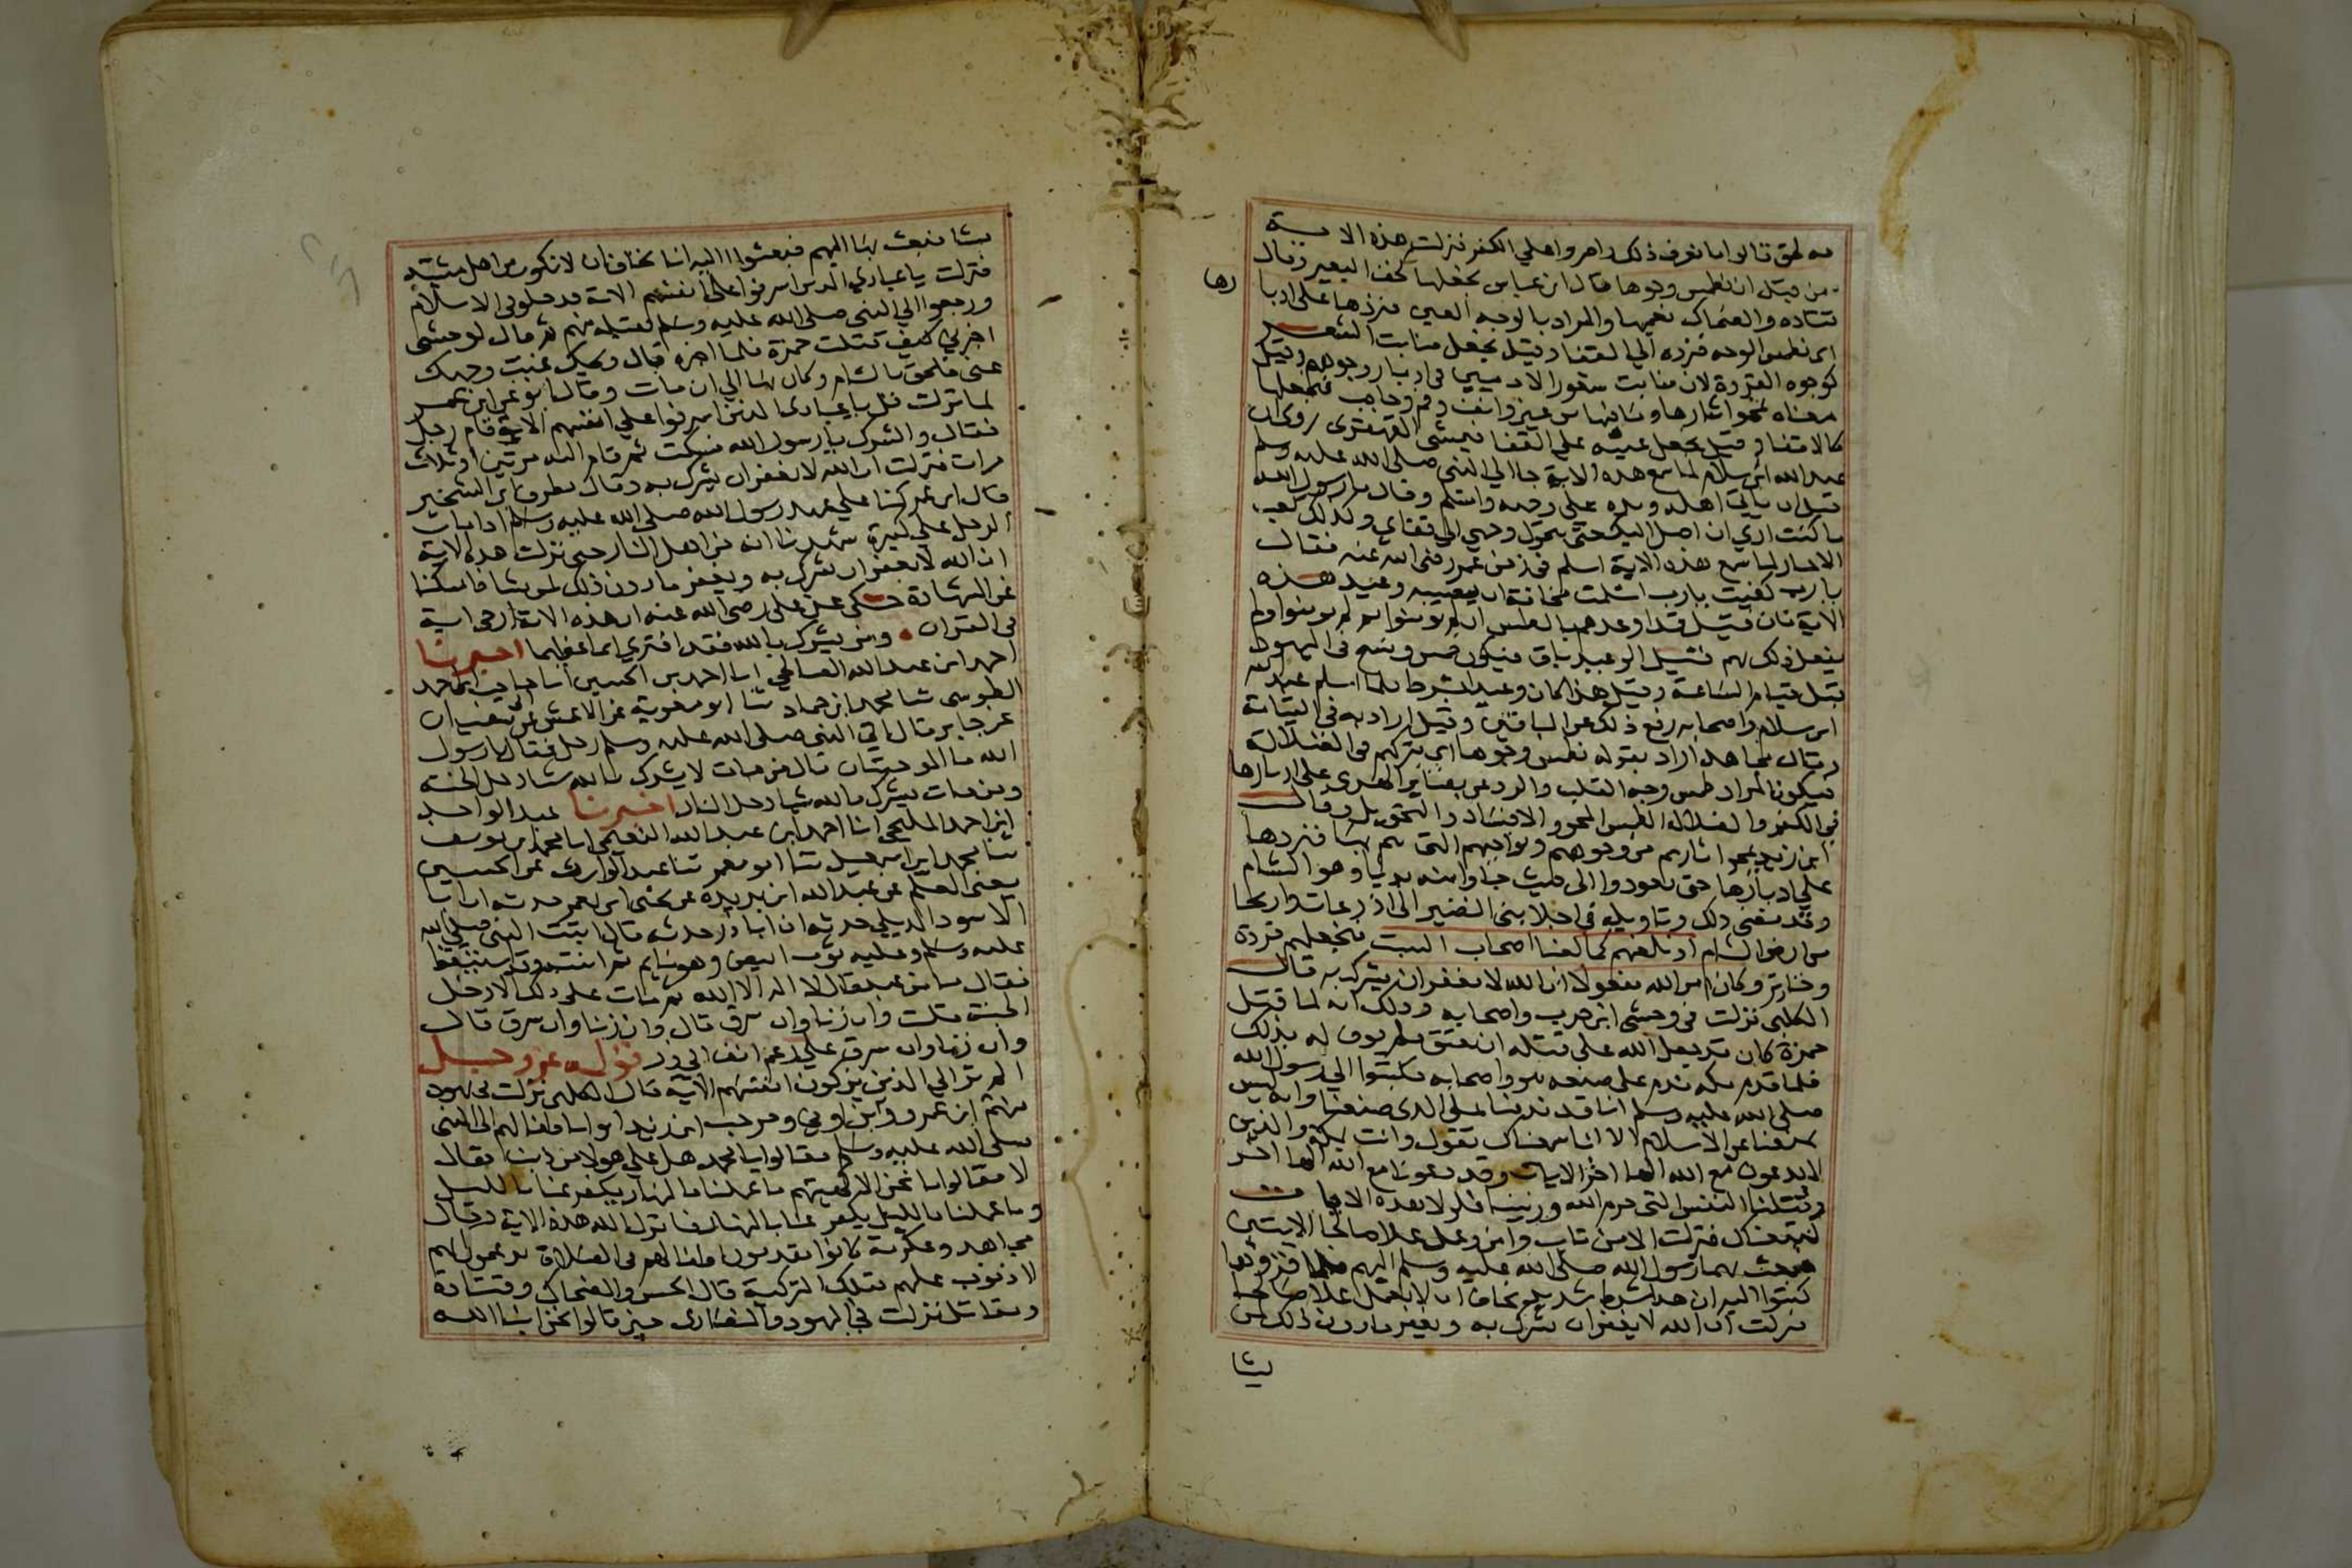 به لحق قالوا ما نعرف ذلك واصروا على الكفر فنزلت هذه الاية
من قبل ان نطمس وجوها قال ابن عباس نجعلها كخف البعير وقال
قتادة والضحاك نعميها والمراد بالوجه العين فنردها على ادبا
رها
اي نطمس الوجه فنرده الي القفا وقيل نجعل منابت الشعر
كوجوه القردة لان منابت شعور الادميين في ادبار وجوههم وقيل
معناه نمحوا اثارها وما فيها من عين وانف وفم وحاجب فنجعلها
كالاقفا وقيل نجعل عينيه علي القفا فيمشي القهقرى روى ان
عبد الله ابن سلام لما سمع هذه الاية جا الي النبي صلى الله عليه وسلم
قبل ان ياتي اهله ويده على وجهه واسلم وقال يا رسول الله
ما كنت اري ان اصل اليك حتى يتحول وجهي الي قفاي وكذلك كعب
الاحبار لما سمع هذه الاية اسلم في زمن عمر رضي الله عنه فقال
يا رب كفيت يا رب اسلمت مخافة ان يصيبه وعيد هذه
الاية فان قيل قد اوعدهم بالطمس ان لم يومنوا ثم لم يومنوا ولم
يفعل ذلك بهم قيل الوعيد باق فيكون طمس ومسخ في اليهود
قبل قيام الساعة وقيل هذا كان وعيدا بشرط فلما اسلم عبد الله
ابن سلام واصحابه رفع ذلك عن الباقين وقيل اراد به في القيامة
وقال مجاهد اراد بقوله نطمس وجوها اي نتركهم في الضلالة
فيكون المراد طمس وجه القلب والرد عن بصاير الهدى على ادبارها
في الكفر والضلالة الطمس المحو والافساد والتحويل وقال
ابن زيد نمحوا اثارهم من وجوههم ونواحيهم التي هم بها فنردها
علي ادبارها حتى يعودوا الى حيث جاوا منه بديا وهو الشام
وقد مضى ذلك وتاويله في اجلا بني النضير الى اذرعات واريحا
من ارض الشام او نلعنهم كما لعنا اصحاب السبت فنجعلهم قردة
وخنازير وكان امر الله مفعولا ان الله لا يغفر ان يشرك به قال
الكلبي نزلت في وحشي ابن حرب واصحابه وذلك انه لما قتل
حمزة كان قد جعل الله على قتله ان يعتق فلم يوف له بذلك
فلما قدم مكة ندم على صنعه هو واصحابه فكتبوا الي رسول الله
صلى الله عليه وسلم انا قد ندمنا على الذي صنعنا وانه ليس
يمنعنا عن الاسلام الا انا سمعناك تقول وانت بمكة والذين
لا يدعون مع الله الها اخر الايات وقد دعونا مع الله الها اخر
وقتلنا النفس التي حرم الله وزنينا فلولا هذه الايات
لتبعناك فنزلت الا من تاب وامن وعمل عملا صالحا الايتين
فبعث بهما رسول الله صلى الله عليه وسلم اليهم فلما قرؤهما
كتبوا اليه ان هذا شرط شديد نخاف ان لا نعمل عملا صالحا
نزلت ان الله لا يغفر ان يشرك به ويغفر ما دون ذلك لمن
يشا
يشا فبعث بها اليهم فبعثوا اليه انا نخاف ان لا نكون من اهل مشيته
فنزلت يا عبادي الذين اسرفوا على انفسهم الاية فدخلوا في الاسلام
ورجعوا الي النبي صلى الله عليه وسلم فقبله منهم ثم قال لوحشي
اخبرني كيف قتلت حمزة فلما اخبره قال ويحك غيب وجهك
عني فلحق بالشام وكان بها الي ان مات وقال ابو عمر ابن عمر
لما نزلت قل يا عبادي الذين اسرفوا علي انفسهم الاية قام رجل
فقال والشرك يا رسول الله فسكت ثم قام اليه مرتين او ثلاث
مرات فنزلت ان الله لا يغفر ان يشرك به وقال مطرف ابن الشخير
قال ابن عمر كنا علي عهد رسول الله صلى الله عليه وسلم اذا مات
الرجل علي كبيرة شهدنا انه من اهل النار حتى نزلت هذه الاية
ان الله لا يغفر ان يشرك به ويغفر ما دون ذلك لمن يشا فامسكنا
عن الشهادة حكى عن على رضي الله عنه ان هذه الاية ارجى اية
في القران ومن يشرك بالله فقد افتري اثما عظيما اخبرنا
احمد ابن عبد الله الصالحي انا احمد بن الحسين انا حاجب ابن احمد
الطوسي ثنا محمد ابن حماد ثنا ابو معوية عن الاعمش عن ابي سفيان
عن جابر قال اتي النبي صلى الله عليه وسلم رجل فقال يا رسول
الله ما الموجبتان قال من مات لا يشرك بالله شيا دخل الجنة
ومن مات يشرك بالله شيا دخل النار اخبرنا عبد الواحد
ابن احمد المليحي انا احمد ابن عبد الله النعيمي انا محمد ابن يوسف
ثنا محمد ابن اسمعيل ثنا ابو معمر ثنا عبد الوارث عن الحسين
يعني المعلم عن عبد الله ابن بريدة عن يحيى ابن يعمر حدثه ان ابا
الاسود الديلي حدثه ان ابا ذر حدثه قال اتيت النبي صلى الله
عليه وسلم وعليه ثوب ابيض وهو نايم ثم اتيته وقد استيقظ
فقال ما من عبد قال لا اله الا الله ثم مات على ذلك الا دخل
الجنة قلت وان زنا وان سرق قال وان زنا وان سرق قال
وان زنا وان سرق علي رغم انف ابي ذر قوله عز وجل
الم تر الي الذين يزكون انفسهم الاية قال الكلبي نزلت في يهود
منهم ابن عمرو وابن اوفي ومرحب ابن زيد اتوا باطفالهم الى النبي
صلى الله عليه وسلم فقالوا يا محمد هل علي هولا من ذنب فقال
لا فقالوا ما نحن الا كهيئتهم ما عملنا بالنهار يكفر عنا بالليل
وما عملنا بالليل يكفر عنا بالنهار فانزل الله هذه الاية وقال
مجاهد وعكرمة كانوا يقدمون اطفالهم في الصلاة يزعمون انهم
لا ذنوب عليهم فتلك التزكية قال الحسن والضحاك وقتادة
ومقاتل نزلت في اليهود والنصارى حين قالوا نحن ابنا الله